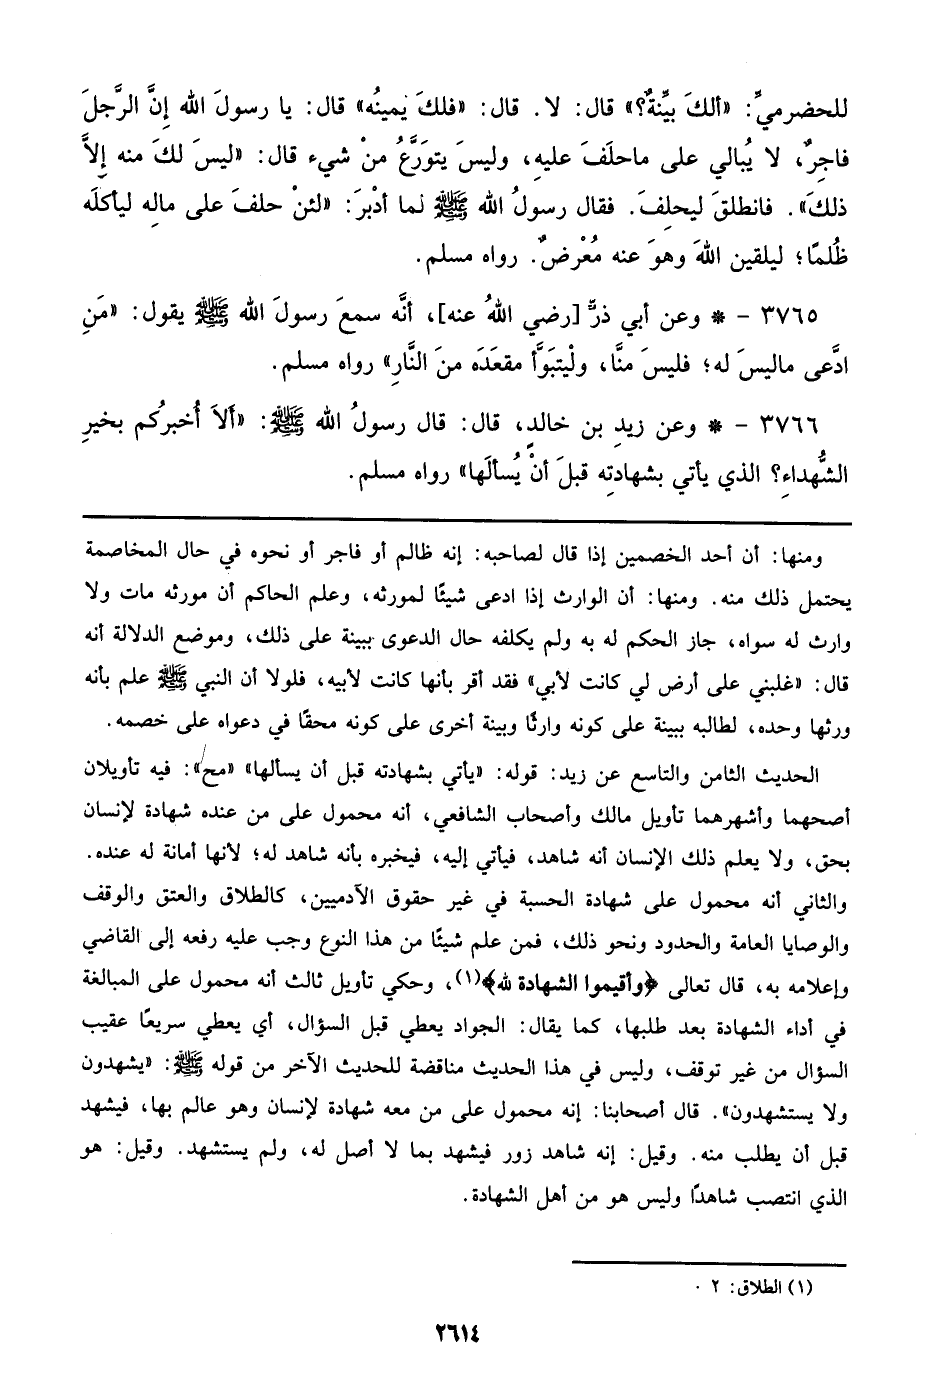 للحضرميِّ: «ألكَ بيِّنةٌ؟» قال: لا. قال: «فلكَ يَمينُه» قال: يا رسولَ الله إنَّ الرَّجلَ
فاجِرٌ، لا يُبالي على ماحلَفَ عليهِ، وليسَ يتورَّعُ منْ شيء قال: «ليسَ لكَ منه إلاَّ
ذلكَ». فانطلقَ ليحلِفَ. فقال رسولُ الله ﷺ لما أدْبرَ: «لئنْ حلفَ على مالِه ليأكلَه
ظُلمًا؛ ليلقين اللهَ وهوَ عنه مُعْرضٌ. رواه مسلم.
٣٧٦٥ – * وعن أبي ذرٍّ [رضي اللهُ عنه]، أنَّه سمعَ رسولَ الله ﷺ يقول: «مَنِ
ادَّعى ماليسَ له؛ فليسَ منَّا، ولْيتبَوَّأ مقعَدَه منَ النَّارِ» رواه مسلم.
٣٧٦٦ – * وعن زيدِ بن خالدٍ، قال: قال رسولُ الله ﷺ: «ألاَ أُخبرُكم بخيرِ
الشُّهداءِ؟ الذي يأتي بشهادتِه قبلَ أنْ يُسألَها» رواه مسلم.
ومنها: أن أحد الخصمين إذا قال لصاحبه: إنه ظالم أو فاجر أو نحوه في حال المخاصمة
يحتمل ذلك منه. ومنها: أن الوارث إذا ادعى شيئًا لمورثه، وعلم الحاكم أن مورثه مات ولا
وارث له سواه، جاز الحكم له به ولم يكلفه حال الدعوى ببينة على ذلك، وموضع الدلالة أنه
قال: «غلبني على أرض لي كانت لأبي» فقد أقر بأنها كانت لأبيه، فلولا أن النبي ﷺ علم بأنه
ورثها وحده، لطالبه ببينة على كونه وارثًا وبينة أخرى على كونه محقًا في دعواه على خصمه.
الحديث الثامن والتاسع عن زيد: قوله: «يأتي بشهادته قبل أن يسألها» «مح»: فيه تأويلان
أصحهما وأشهرهما تأويل مالك وأصحاب الشافعي، أنه محمول على من عنده شهادة لإنسان
بحق، ولا يعلم ذلك الإنسان أنه شاهد، فيأتي إليه، فيخبره بأنه شاهد له؛ لأنها أمانة له عنده.
والثاني أنه محمول على شهادة الحسبة في غير حقوق الآدميين، كالطلاق والعتق والوقف
والوصايا العامة والحدود ونحو ذلك، فمن علم شيئًا من هذا النوع وجب عليه رفعه إلى القاضي
وإعلامه به، قال تعالى ﴿وأقيموا الشهادة لله﴾(١)، وحكي تأويل ثالث أنه محمول على المبالغة
في أداء الشهادة بعد طلبها، كما يقال: الجواد يعطي قبل السؤال، أي يعطي سريعًا عقيب
السؤال من غير توقف، وليس في هذا الحديث مناقضة للحديث الآخر من قوله ﷺ: «يشهدون
ولا يستشهدون». قال أصحابنا: إنه محمول على من معه شهادة لإنسان وهو عالم بها، فيشهد
قبل أن يطلب منه. وقيل: إنه شاهد زور فيشهد بما لا أصل له، ولم يستشهد. وقيل: هو
الذي انتصب شاهدًا وليس هو من أهل الشهادة.
(١) الطلاق: ٢ .
٢٦١٤